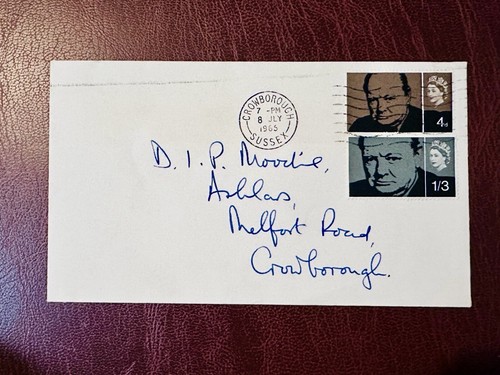 CROWBOROUGH
7 - PM
8 JLY
1965
SUSSEX
4D
1/3
D. I. P. Moodie,
Ashlars,
Melfort Road,
Crowborough.